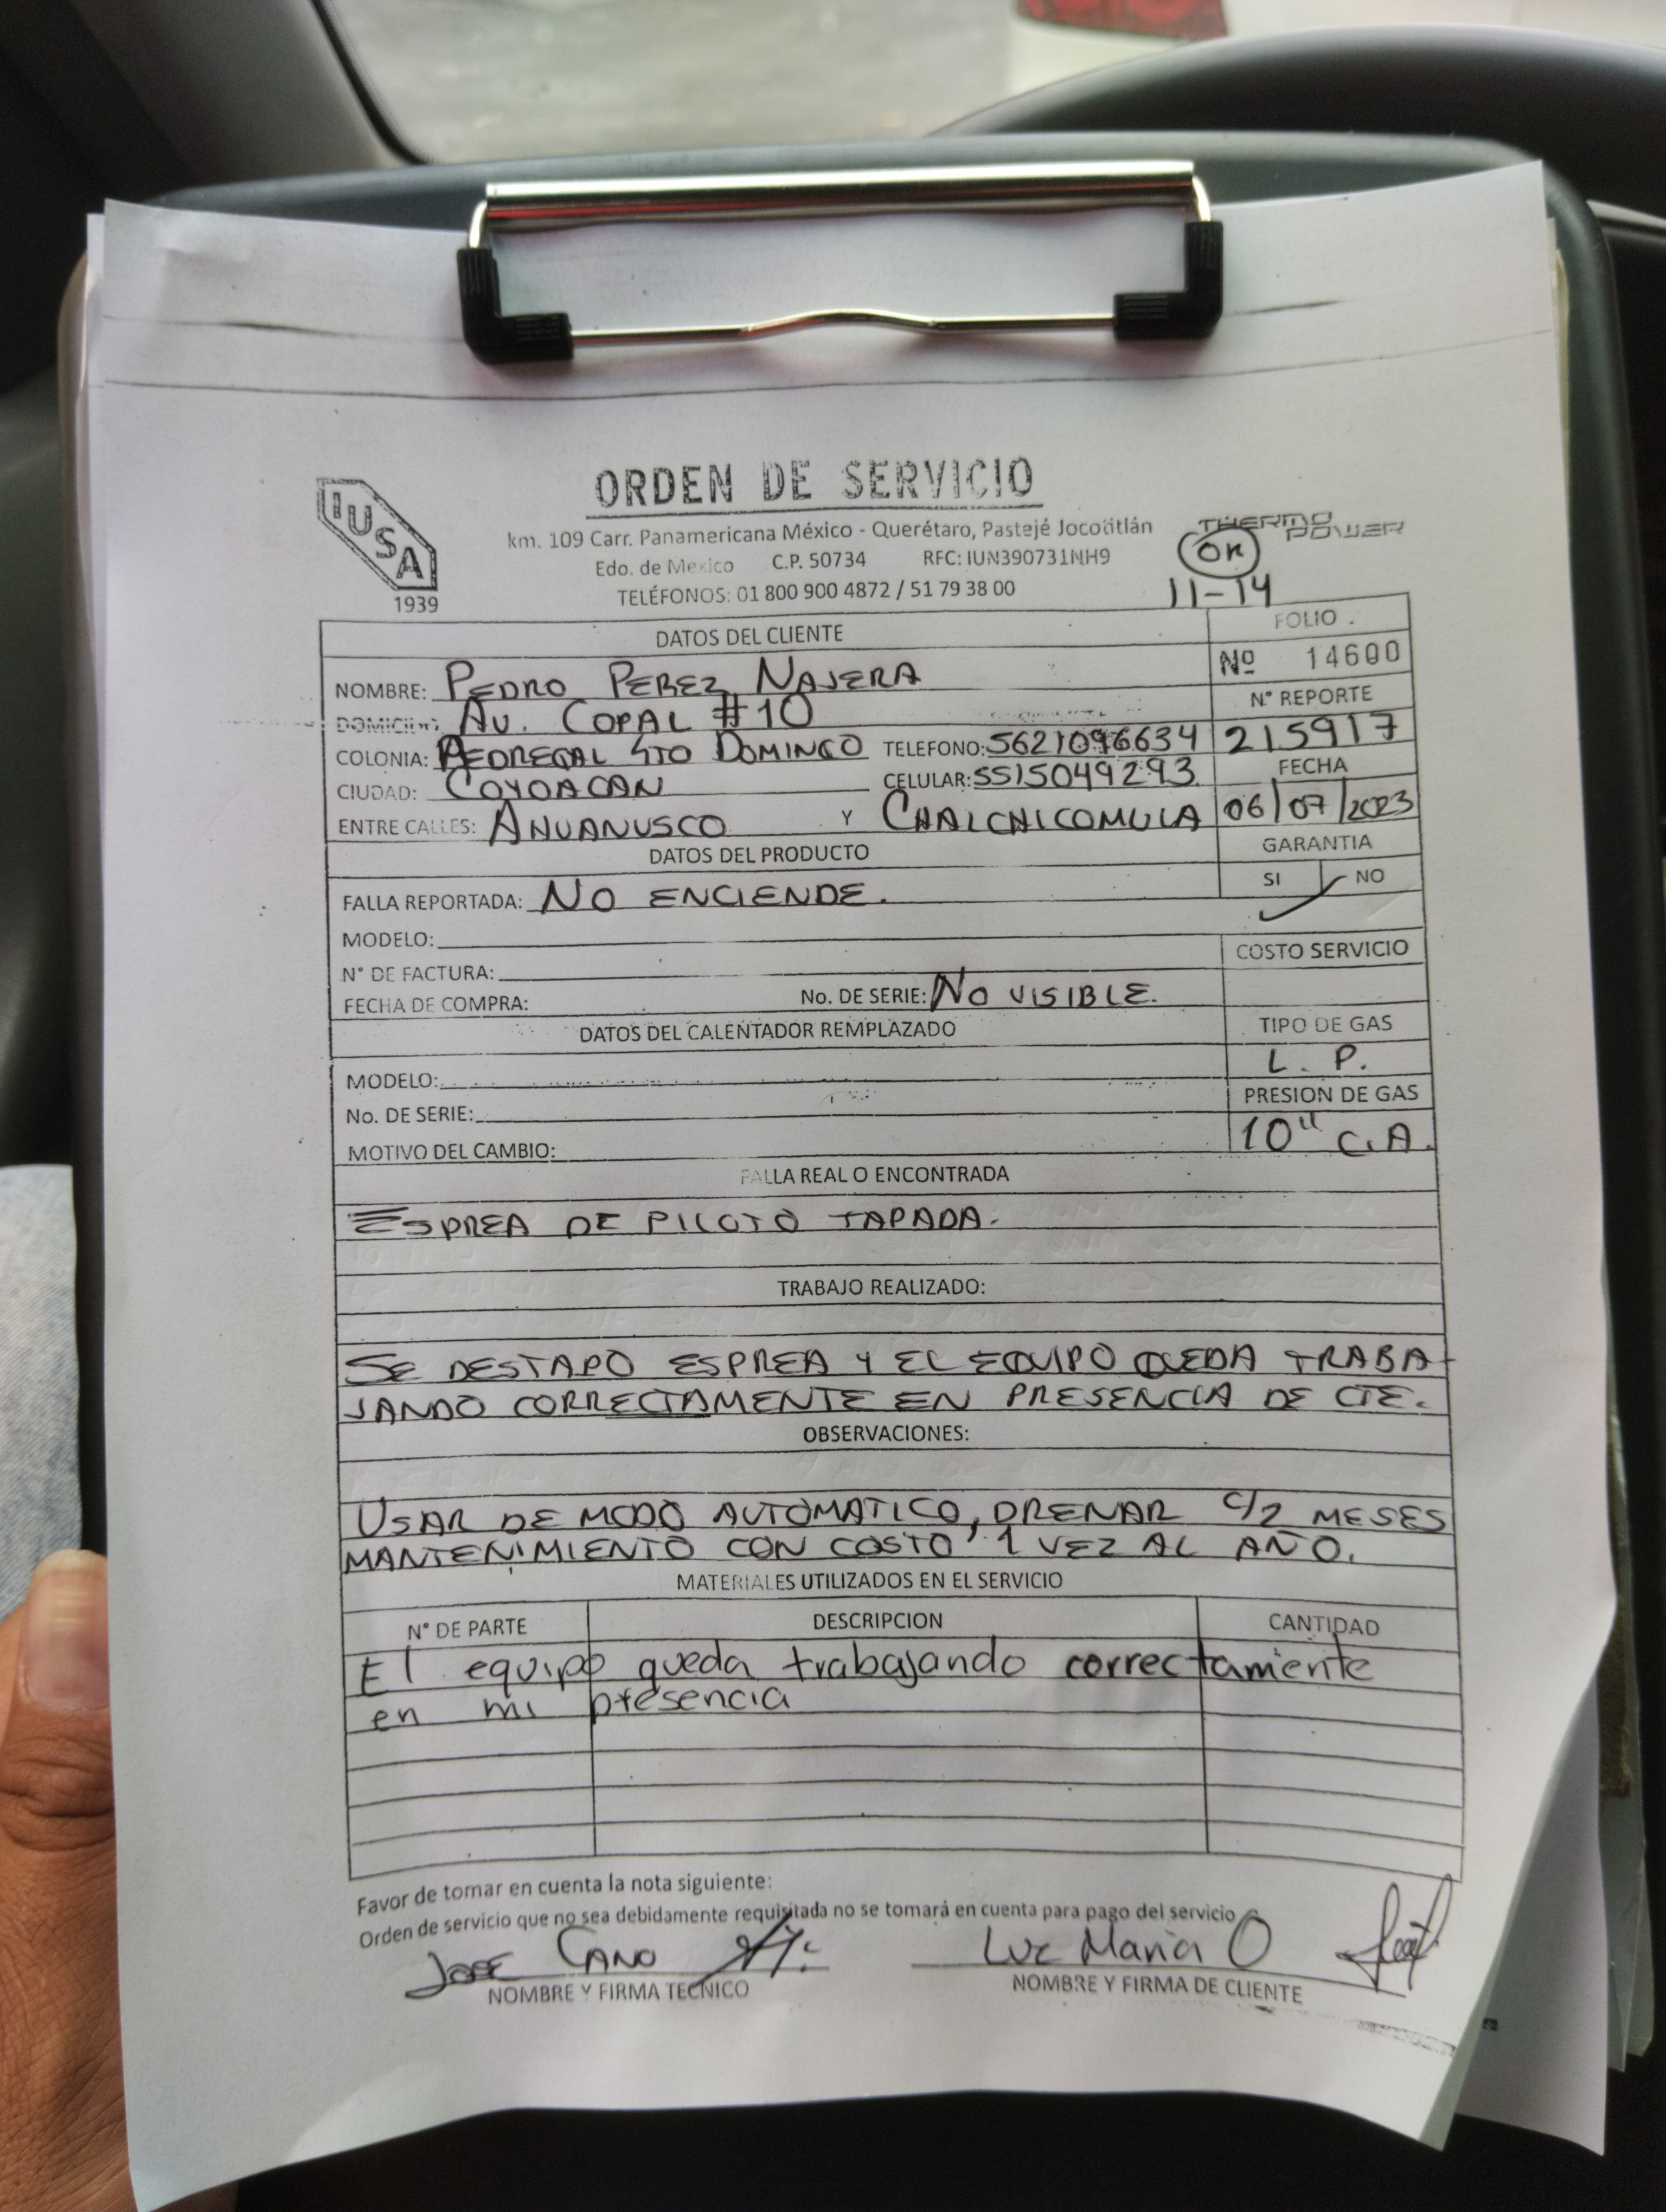 ORDEN DE SERVICIO
IUSA
1939
km. 109 Carr. Panamericana México - Querétaro, Pastejé Jocotitlán
Edo. de Mexico C.P. 50734 RFC: IUN390731NH9
TELÉFONOS: 01 800 900 4872 / 51 79 38 00
THERMO
POWER
OK
11-14
DATOS DEL CLIENTE
FOLIO
Nº 14600
NOMBRE: PEDRO PEREZ NAJERA
N° REPORTE
DOMICILIO: AV. COPAL #10
215917
COLONIA: PEDREGAL STO DOMINGO TELEFONO: 5621096634
CIUDAD: COYOACAN CELULAR: 5515049293
FECHA
06/07/2023
ENTRE CALLES: AHUANUSCO Y CHALCHICOMULA
DATOS DEL PRODUCTO
GARANTIA
SI NO
FALLA REPORTADA: NO ENCIENDE.
MODELO:
COSTO SERVICIO
N° DE FACTURA:
FECHA DE COMPRA: No. DE SERIE: NO VISIBLE.
DATOS DEL CALENTADOR REMPLAZADO
TIPO DE GAS
L. P.
MODELO:
PRESION DE GAS
No. DE SERIE:
10" C.A.
MOTIVO DEL CAMBIO:
FALLA REAL O ENCONTRADA
ESPREA DE PILOTO TAPADA.
TRABAJO REALIZADO:
SE DESTAPO ESPREA Y EL EQUIPO QUEDA TRABA-
JANDO CORRECTAMENTE EN PRESENCIA DE CTE.
OBSERVACIONES:
USAR DE MODO AUTOMATICO, DRENAR C/2 MESES
MANTENIMIENTO CON COSTO, 1 VEZ AL AÑO.
MATERIALES UTILIZADOS EN EL SERVICIO
N° DE PARTE DESCRIPCION CANTIDAD
El equipo queda trabajando correctamiente
en mi presencia
Favor de tomar en cuenta la nota siguiente:
Orden de servicio que no sea debidamente requisitada no se tomará en cuenta para pago del servicio
JOSE CANO
Luz Maria O
NOMBRE Y FIRMA TECNICO
NOMBRE Y FIRMA DE CLIENTE